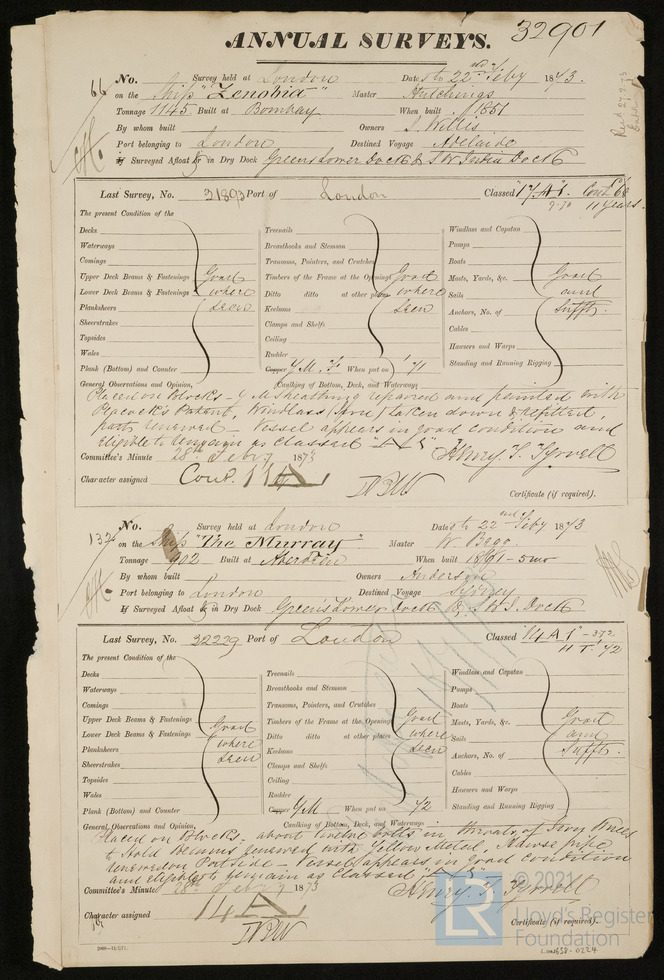 32901
ANNUAL SURVEYS.
66 No. Survey held at London Date 22nd Feby 1873.
on the Ship "Zenobia" Master Hutchings
Tonnage 1145 Built at Bombay When built 1851
By whom built Owners J. Willis
Port belonging to London Destined Voyage Adelaide
If Surveyed Afloat or in Dry Dock Green's Lower Dock & S W India Dock
Last Survey, No. 21893 Port of London Classed 11 years.
The present Condition of the
Decks Treenails Windlass and Capstan
Waterways Breasthooks and Stemson Pumps
Comings Transoms, Pointers, and Crutches Boats
Upper Deck Beams & Fastenings Good Timbers of the Frame at the Openings Good Masts, Yards, &c. Good
Lower Deck Beams & Fastenings where Ditto ditto at other places where Sails and
Planksheers seen Keelsons seen Anchors, No. of Sufft.
Sheerstrakes Clamps and Shelfs Cables
Topsides Ceiling Hawsers and Warps
Wales Rudder Standing and Running Rigging
Plank (Bottom) and Counter Copper Y.M. When put on '71
General Observations and Opinion, Caulking of Bottom, Deck, and Waterways
Placed on Blocks - Y M Sheathing repaired and painted with
Peacock's Patent, Windlass taken down & refitted,
parts renewed - Vessel appears in good condition and
eligible to remain as classed Henry T. Tyrrell
Committee's Minute 28th Feby 1873
Character assigned Cont. 11A1
Certificate (if required).
No. Survey held at London Date 22nd Feby 1873
137 on the Ship "The Murray" Master W. Begg
Tonnage 902 Built at Aberdeen When built 1861 - 5 mo
By whom built Owners Anderson
Port belonging to London Destined Voyage Sydney
If Surveyed Afloat or in Dry Dock Green's Lower Dock & S W I. Dock
Last Survey, No. 32229 Port of London Classed 14 A 1 - 3.72
H T. '72
The present Condition of the
Decks Treenails Windlass and Capstan
Waterways Breasthooks and Stemson Pumps
Comings Transoms, Pointers, and Crutches Boats
Upper Deck Beams & Fastenings Good Timbers of the Frame at the Openings Good Masts, Yards, &c. Good
Lower Deck Beams & Fastenings where Ditto ditto at other places where Sails and
Planksheers seen Keelsons seen Anchors, No. of Sufft.
Sheerstrakes Clamps and Shelfs Cables
Topsides Ceiling Hawsers and Warps
Wales Rudder Standing and Running Rigging
Plank (Bottom) and Counter Copper Y M When put on '72
General Observations and Opinion, Caulking of Bottom, Deck, and Waterways
Placed on Blocks - about twelve bolts in throats of Iron Knees
to Hold Beams renewed with Yellow Metal, Hawse pipe
renewed on Port side - Vessel appears in good condition
and eligible to remain as Classed Henry T. Tyrrell
Committee's Minute 28th Feby 1873
Character assigned 14A1
Certificate (if required).
© 2021
LR Lloyd's Register
Foundation
LON658-0224